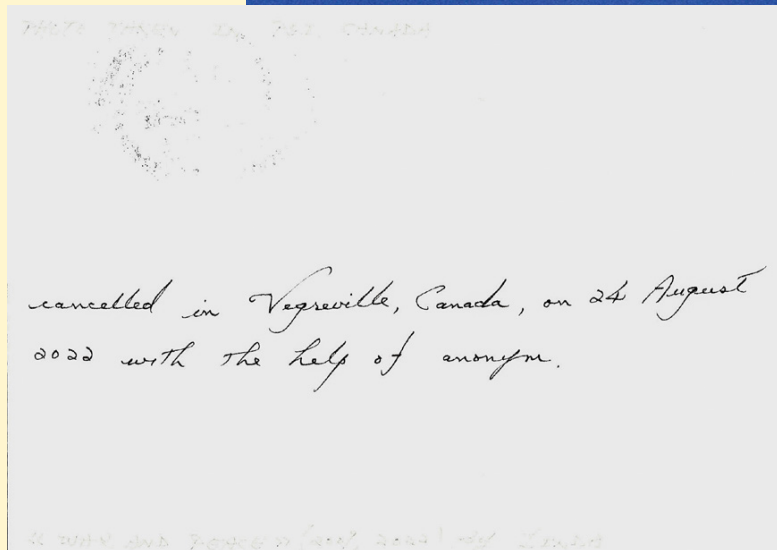 cancelled in Vegreville, Canada, on 24 August
2022 with the help of anonym.